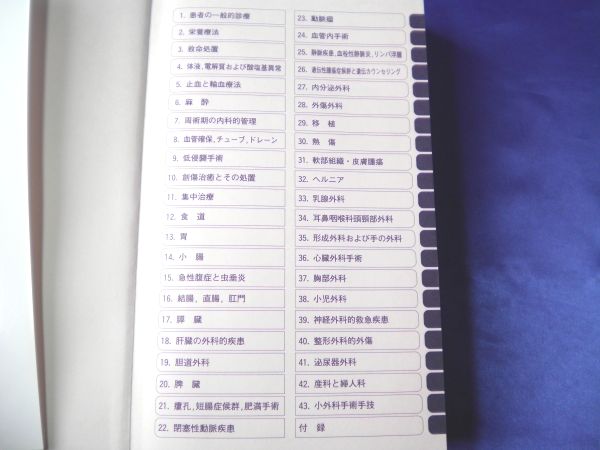 1. 患者の一般的診療
2. 栄養療法
3. 救命処置
4. 体液,電解質および酸塩基異常
5. 止血と輸血療法
6. 麻 酔
7. 周術期の内科的管理
8. 血管確保,チューブ,ドレーン
9. 低侵襲手術
10. 創傷治癒とその処置
11. 集中治療
12. 食 道
13. 胃
14. 小 腸
15. 急性腹症と虫垂炎
16. 結腸,直腸,肛門
17. 膵 臓
18. 肝臓の外科的疾患
19. 胆道外科
20. 脾 臓
21. 瘻孔,短腸症候群,肥満手術
22. 閉塞性動脈疾患
23. 動脈瘤
24. 血管内手術
25. 静脈疾患,血栓性静脈炎,リンパ浮腫
26. 遺伝性腫瘍症候群と遺伝カウンセリング
27. 内分泌外科
28. 外傷外科
29. 移 植
30. 熱 傷
31. 軟部組織・皮膚腫瘍
32. ヘルニア
33. 乳腺外科
34. 耳鼻咽喉科頭頸部外科
35. 形成外科および手の外科
36. 心臓外科手術
37. 胸部外科
38. 小児外科
39. 神経外科的救急疾患
40. 整形外科的外傷
41. 泌尿器外科
42. 産科と婦人科
43. 小外科手術手技
付 録